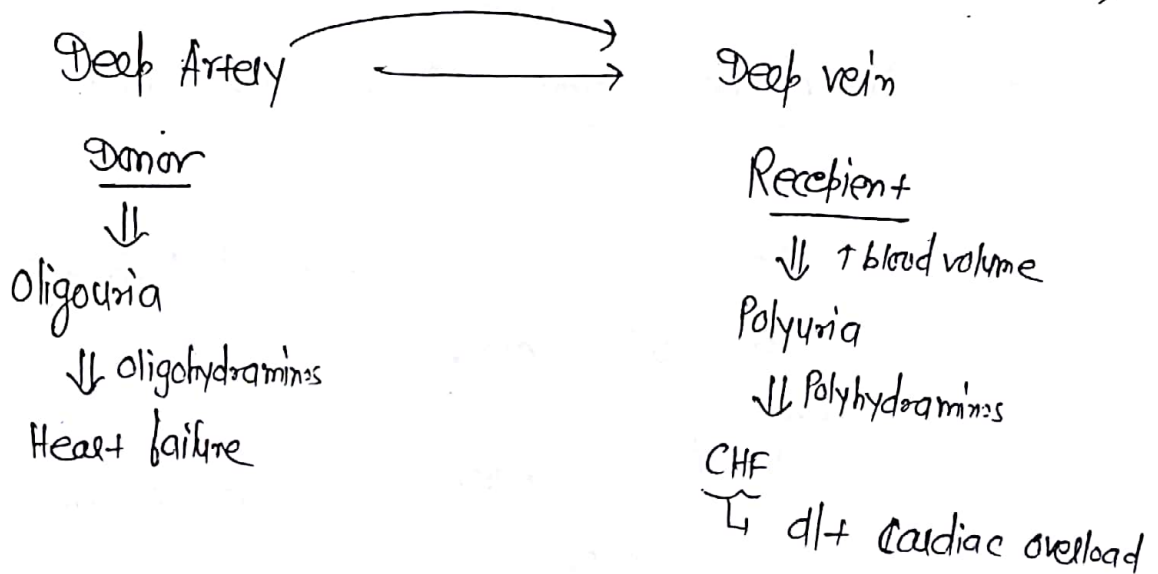 Deep Artery
Donor
Oligouria
Oligohydraminos
Heart failure
Deep vein
Recepient
↑ blood volume
Polyuria
Polyhydraminos
CHF
d/t Cardiac overload